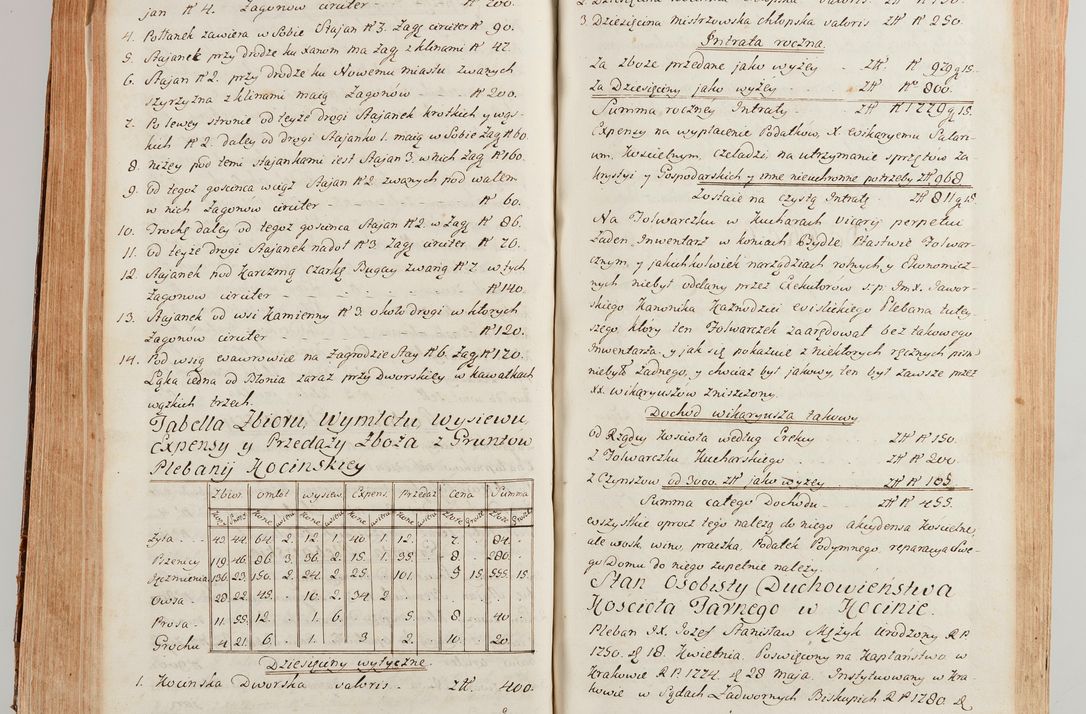 jan Nº 4. Zagonow circiter - Nº 200.
4. Połtanek zawiera w Sobie Stajan Nº 3. Zagg circiter Nº 90.
5. Stajanek przy drodze ku Xanom ma zagg z klinami Nº 42.
6. Stajan Nº 2. przy drodze ku Nowemu miastu zwanych
szyrzyzna z klinami maią Zagonow - - Nº 200.
7. Po lewey stronie od teyże drogi Stajanek krotkich y wąs-
kich Nº 2. daley od drogi Stajanko 1. maią w Sobie Zagg Nº 60.
8. niżey pod temi Stajankami iest Stajan 3. w nich Zagg Nº 160.
9. Od tegoż goscinca wciąż Stajan Nº 2. zwanych pod wałem
w nich Zagonów circiter - - - Nº 60.
10. Trochę daley od tegoż goscinca Stajan Nº 2. w Zagg Nº 86.
11. Od teyże drogi Stajanek nadoł Nº 3 Zagg circiter Nº 76.
12. Stajanek pod Karczmą Czarkę Bugay zwaną Nº 2. w tych
Zagonow circiter - - - - Nº 140.
13. Stajanek od wsi Kamienny Nº 3. około drogi w ktorych
Zagonów circiter - - - Nº 120.
14. Pod wsią Wawrowice na Zagrodzie Stay Nº 6. Zagg Nº 120.
Łąka iedna od Błonia zaraz przy Dworskiey w kawałkach
wązkich trzech.
Tabella Zbioru, Wymłotu, Wysiewu,
Expensy y Przedaży Zboża z Gruntow
Plebanij Kocinskiey
Zbior. omłot wysiew. Expens. Przedaż Cena Summa
Żyta 43 44 64 2. 12 1. 40 1. 12. 7. 84.
Pszenicy 119 46 86 3. 36 2. 15 1. 35. 8. 280.
Jęczmienia 136 23 150 2. 24 2. 25. 101. 5 15. 555 15.
Owsa 28 22 45. 10 2. 34 2
Prosa 11 55 12. 1. 6. 5. 8. 40
Grochu 4 21 6. 1. 3. 2. 10. 20.
Dziesięciny wytyczne.
1. Kocinska Dworska valoris - Złł. 400.
3 Dziesięcina mistrzowska chłopska valoris Złł Nº 250.
Intrata roczna.
Za zboże przedane jako wyżey - Złł. Nº 979 g 15.
Za Dziesięciny jako wyżey - Złł Nº 800.
Summa roczney Intraty - Złł Nº 1779 g 15.
Expensy na wypłacenie Podatków, X. Wikaryemu Salari-
um, Kościelnym, Czeladzi, na utrzymanie sprzętow Za
krystyi y Gospodarskich y inne nieuchronne potrzeby Złł 968.
Zostaie na czystą Intratę Złł 811 g 15
Na Folwarczku w Kucharach Vicarij perpetui
żaden Inwentarz w koniach Bydle, Ptastwie Folwar-
cznym, y jakichkolwiek narzędziach rolnych y Ekonomicz-
nych niebył oddany przez Exekutorow s.p. Jmx. Jawor-
skiego Kanonika Kaznodziei Wislickiego Plebana tutey-
szego, ktory ten Folwarczek zaarędował bez takowego
Inwentarza, y jak się pokazuie z niektorych ręcznych pism
niebył żadnego, y chociaż był jakowy, ten był zawsze przez
XX. wikaryuszow zniszczony.
Dochod wikaryusza takowy
od Rządcy Kościoła według Erekcy Złł Nº 150.
z Folwarczku Kucharskiego - Złł Nº 200.
z Czynszow od 3000. Złł jako wyżey Złł Nº 105
Summa całego Dochodu - Złł Nº 455.
wszystkie oprocz tego należą do niego akcydensa Kościelne,
ale wosk, wino, praczka, Podatek Podymnego, reparacya Swe-
go Domu do niego zupełnie należy.
Stan Osobisty Duchowieństwa
Koscioła Farnego w Kocinie.
Pleban JX. Jozef Stanisław Mężyk Urodzony R.P.
1750. d. 18. Kwietnia. Poswięcony na Kapłaństwo w
Krakowie R.P. 1774. d. 28 maja. Instytuowany w Kra-
kowie w Sądach Zadwornych Biskupich R.P. 1780. d.